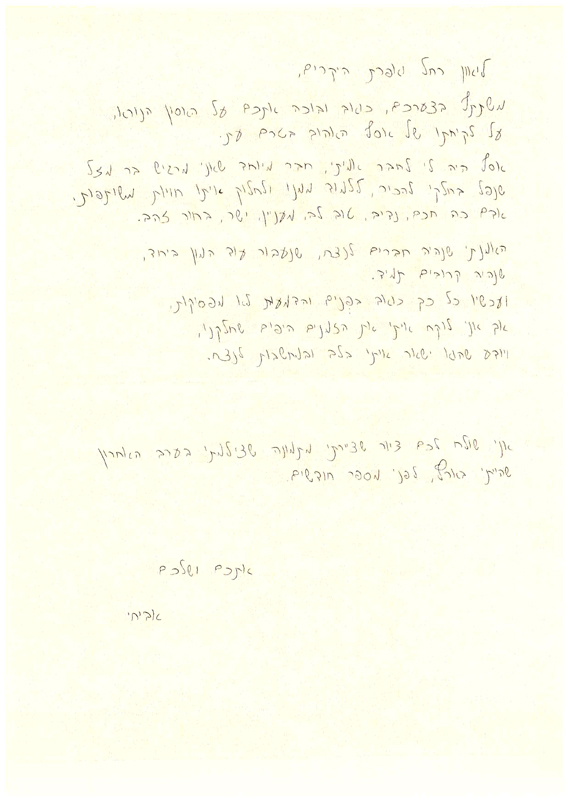 ליאון רחל ואפרת היקרים,
משתתף בצערכם, כואב ובוכה אתכם על האסון הנורא,
על לקיחתו של אסף האהוב בטרם עת.
אסף היה לי לחבר אמיתי, חבר מיוחד שאני מרגיש בר מזל
שנפל בחלקי להכיר, ללמוד ממנו ולחלוק איתו חוויות משותפות.
אדם כה חכם, נדיב, טוב לב, מעניין, ישר, בחור זהב.
האמנתי שנהיה חברים לנצח, שנעבור עוד המון ביחד,
שנהיה קרובים תמיד.
ועכשיו כל כך כואב בפנים והדמעות לא מפסיקות.
אך אני לוקח איתי את הזמנים היפים שחלקנו,
ויודע שהוא ישאר איתי בלב ובמחשבות לנצח.
אני שולח לכם ציור שציירתי מתמונה שצילמתי בערב האחרון
שהייתי בארץ, לפני מספר חודשים.
אתכם ושלכם
אביחי